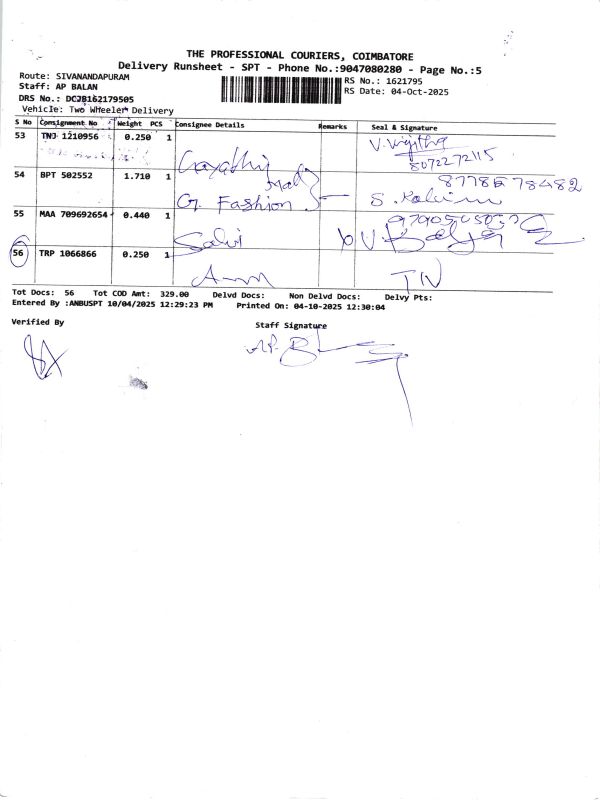 THE PROFESSIONAL COURIERS, COIMBATORE
Delivery Runsheet - SPT - Phone No.:9047080280 - Page No.:5
Route: SIVANANDAPURAM
RS No.: 1621795
Staff: AP BALAN
RS Date: 04-Oct-2025
DRS No.: DCJB162179505
Vehicle: Two Wheeler Delivery
S No Consignment No Weight PCS Consignee Details Remarks Seal & Signature
53 TNJ 1210956 0.250 1 Gayathri
8072272115
54 BPT 502552 1.710 1 G. Fashion
55 MAA 709692654 0.440 1 Salvi
56 TRP 1066866 0.250 1
Tot Docs: 56 Tot COD Amt: 329.00 Delvd Docs: Non Delvd Docs: Delvy Pts:
Entered By :ANBUSPT 10/04/2025 12:29:23 PM Printed On: 04-10-2025 12:30:04
Verified By
Staff Signature